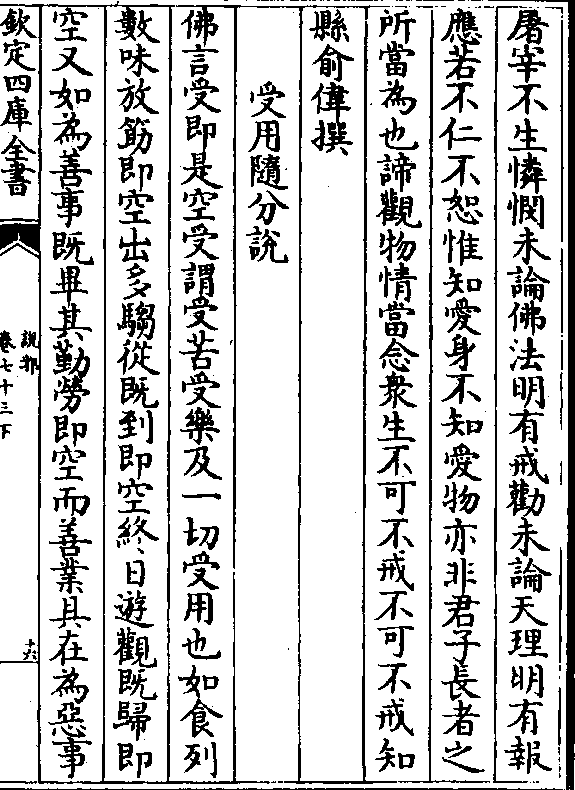 屠宰不生憐憫未論佛法明有戒勸未論天理明有報
應若不仁不恕惟知愛身不知愛物亦非君子長者之
所當為也諦觀物情當念衆生不可不戒不可不戒知
縣俞偉撰
受用隨分說
佛言受即是空受謂受苦受樂及一切受用也如食列
數味放筯即空出多騶從既到即空終日遊觀既歸即
空又如為善事既畢其勤勞即空而善業具在為惡事
欽定四庫全書
說郛
卷七十三下
十六